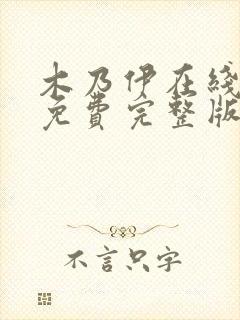 木乃伊在綫
免費完整版
不言只字